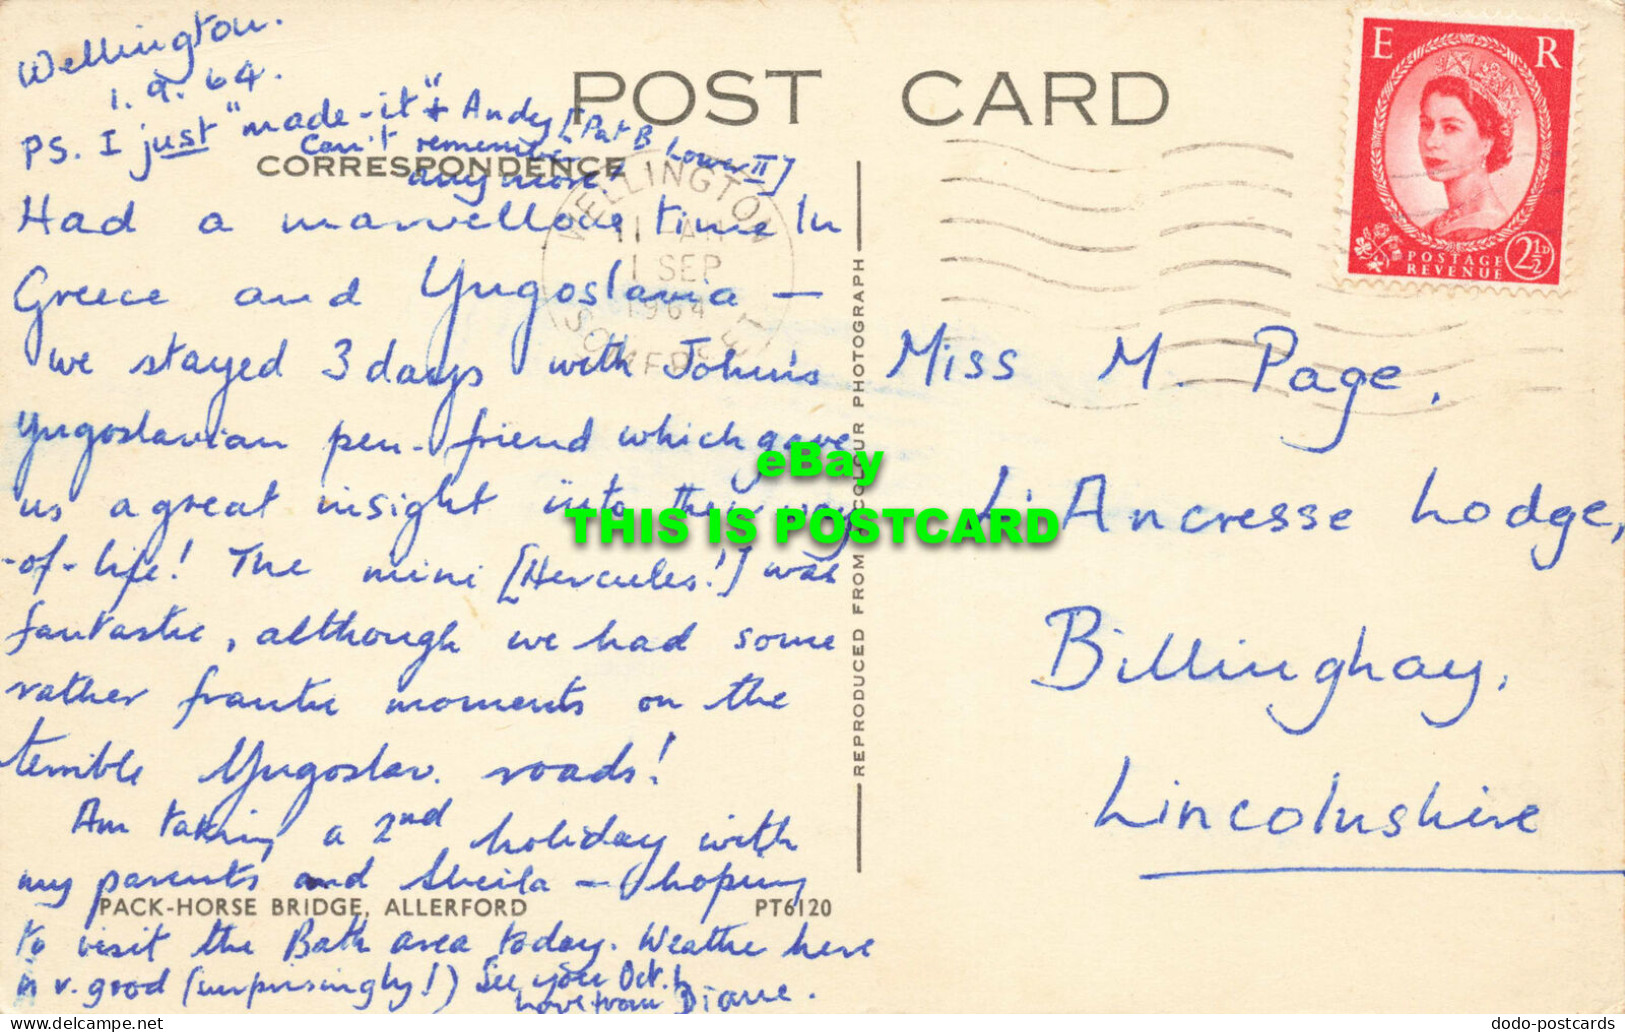 Wellington.
1. 9. 64.
PS. I just "made-it" + Andy [Pat B Lower II]
Can't remember
any more!
POST CARD
CORRESPONDENCE
WELLINGTON
11 AM
1 SEP
1964
SOMERSET
E R
POSTAGE
REVENUE
2½D
Had a marvellous time In
Greece and Yugoslavia —
we stayed 3 days with John's
Yugoslavian pen-friend which gave
us a great insight into their way
-of-life! The mini [Hercules!] was
fantastic, although we had some
rather frantic moments on the
terrible Yugoslav. roads!
Am taking a 2nd holiday with
my parents and Sheila — hoping
PACK-HORSE BRIDGE, ALLERFORD PT6120
to visit the Bath area today. Weather here
is v. good (surprisingly!) See you Oct.
Love from Diane.
REPRODUCED FROM A COLOUR PHOTOGRAPH
Miss M. Page,
L'Ancresse Lodge,
Billinghay,
Lincolnshire
eBay
THIS IS POSTCARD
dodo-postcards